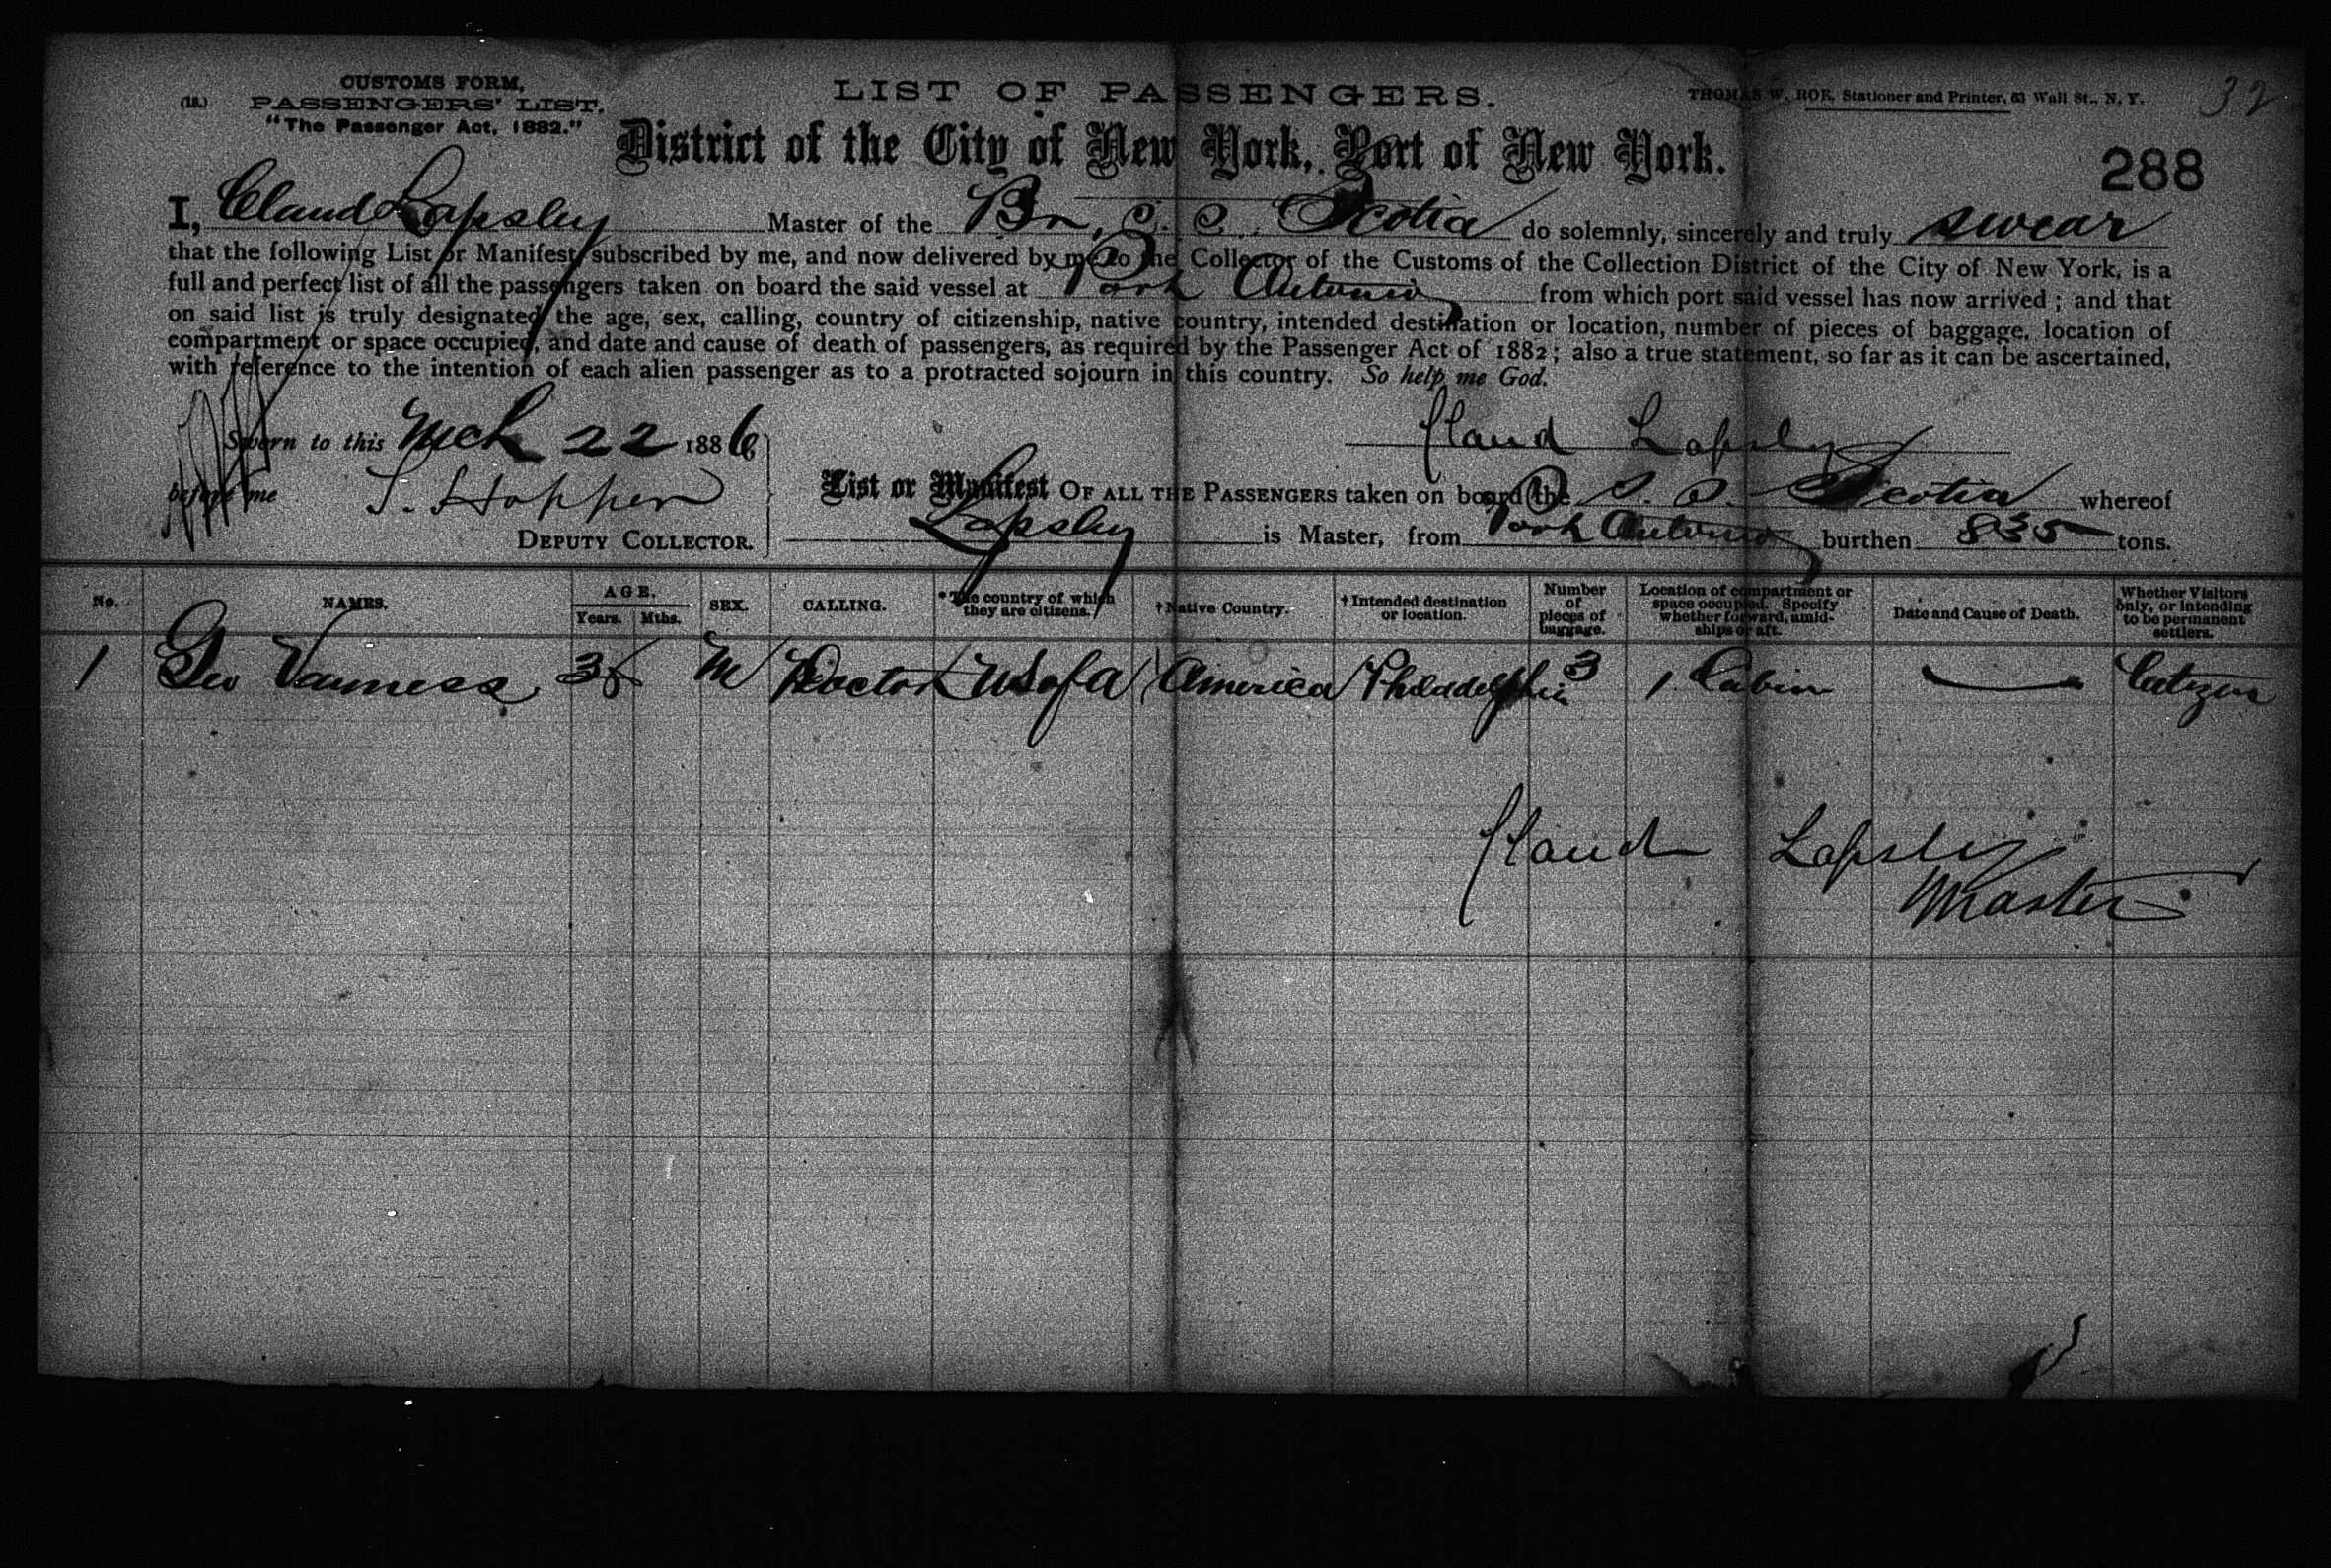 CUSTOMS FORM,
(18.) PASSENGERS' LIST.
"The Passenger Act, 1882."
LIST OF PASSENGERS.
THOMAS W. ROE, Stationer and Printer, 63 Wall St., N. Y.
32
District of the City of New York, Port of New York.
288
I, Claud Lapsley Master of the Br. S. S. Scotia do solemnly, sincerely and truly swear
that the following List or Manifest, subscribed by me, and now delivered by me to the Collector of the Customs of the Collection District of the City of New York, is a
full and perfect list of all the passengers taken on board the said vessel at Port Antonio from which port said vessel has now arrived; and that
on said list is truly designated the age, sex, calling, country of citizenship, native country, intended destination or location, number of pieces of baggage, location of
compartment or space occupied, and date and cause of death of passengers, as required by the Passenger Act of 1882; also a true statement, so far as it can be ascertained,
with reference to the intention of each alien passenger as to a protracted sojourn in this country. So help me God.
Sworn to this Mch 22 1886
Claud Lapsley
before me S. Hopper
DEPUTY COLLECTOR.
List or Manifest OF ALL THE PASSENGERS taken on board the S. S. Scotia whereof
Lapsley is Master, from Port Antonio burthen 835 tons.
No. NAMES. AGE. Years. Mths. SEX. CALLING. * The country of which they are citizens. † Native Country. † Intended destination or location. Number of pieces of baggage. Location of compartment or space occupied. Specify whether forward, amidships or aft. Date and Cause of Death. Whether Visitors only, or intending to be permanent settlers.
1 Geo Vanness 38 M Doctor U S of A America Philadelphia 3 1 Cabin — Citizen
Claud Lapsley
Master